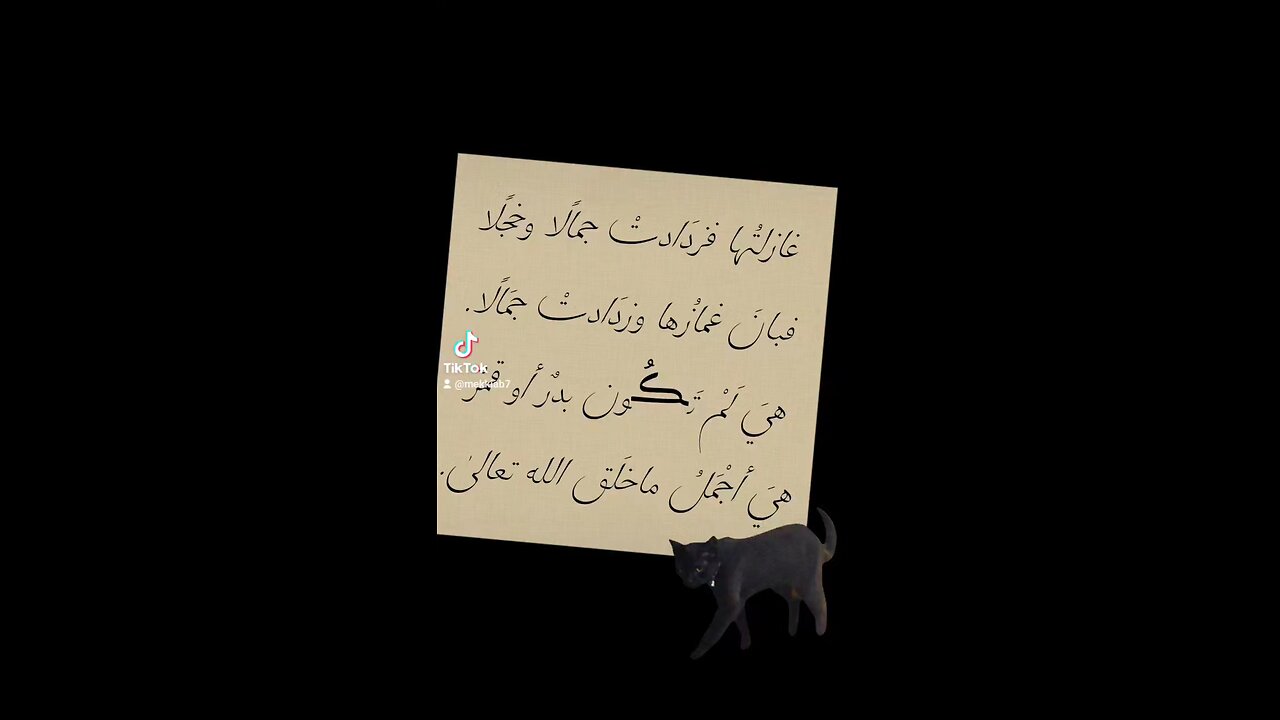 غازلتُها فزدَادتْ جمالًا وخجلًا
فبانَ غمازُها وزدَادتْ جمَالًا.
هيَ لَمْ تَكُون بدرٌ أو قمرٌ
هيَ أجْمَلُ ماخَلَق الله تعالىٰ.
TikTok
@mekkjab7